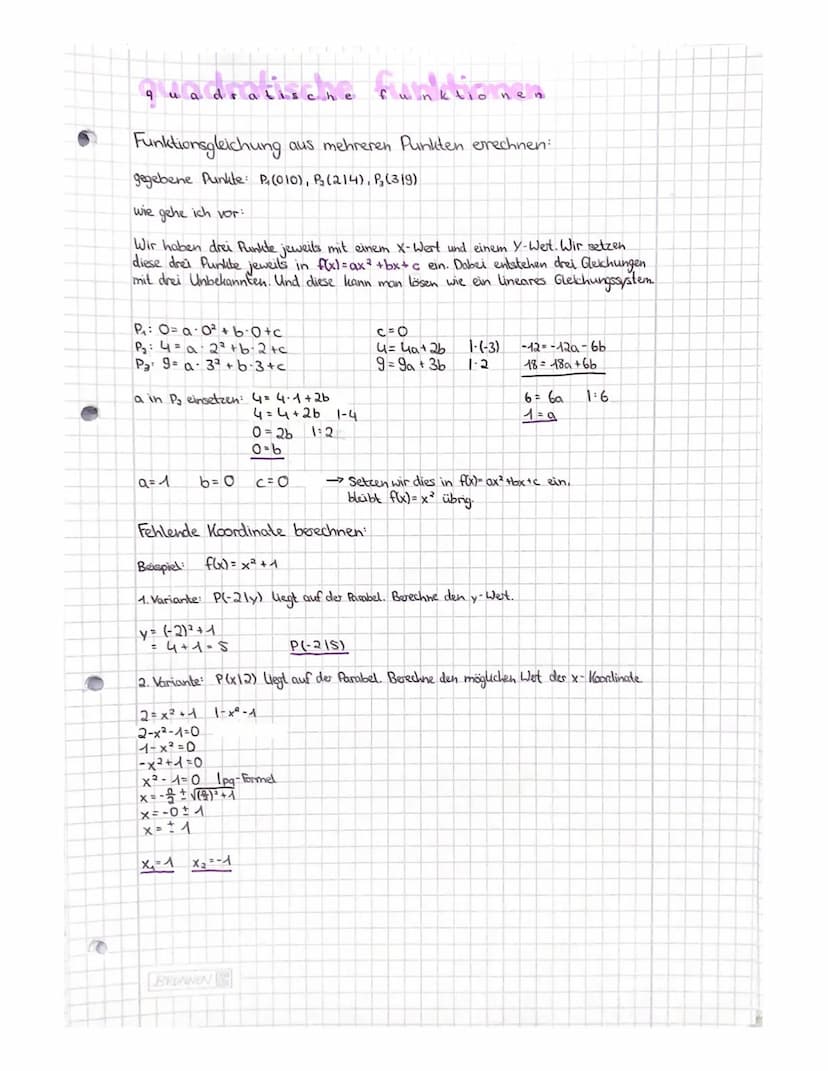 quadratische funktionen
Funktionsgleichung aus mehreren Punkten errechnen:
gegebene Punkte: P₁(0|0), P₂(2|4), P₃(3|9)
wie gehe ich vor:
Wir haben drei Punkte jeweils mit einem X-Wert und einem Y-Wert. Wir setzen
diese drei Punkte jeweils in f(x)=ax²+bx+c ein. Dabei entstehen drei Gleichungen
mit drei Unbekannten. Und diese kann man lösen wie ein lineares Gleichungssystem.
P₁: 0=a·0²+b·0+c c=0
P₂: 4=a·2²+b·2+c 4=4a+2b |·(-3) -12=-12a-6b
P₃: 9=a·3²+b·3+c 9=9a+3b |·2 18=18a+6b
a in P₂ einsetzen: 4=4·1+2b 6=6a |:6
4=4+2b |-4 1=a
0=2b |:2
0=b
a=1 b=0 c=0 → Setzen wir dies in f(x)=ax²+bx+c ein,
bleibt f(x)=x² übrig.
Fehlende Koordinate berechnen:
Beispiel: f(x)=x²+1
1. Variante: P(-2|y) liegt auf der Parabel. Berechne den y-Wert.
y=(-2)²+1
=4+1=5 P(-2|5)
2. Variante: P(x|2) liegt auf der Parabel. Berechne den möglichen Wet der x-Koordinate
2=x²+1 |-x²-1
2-x²-1=0
1-x²=0
-x²+1=0
x²-1=0 |pq-Formel
x=-0/2±√(0/2)²+1
x=-0±1
x=±1
x₁=1 x₂=-1
BRUNNEN